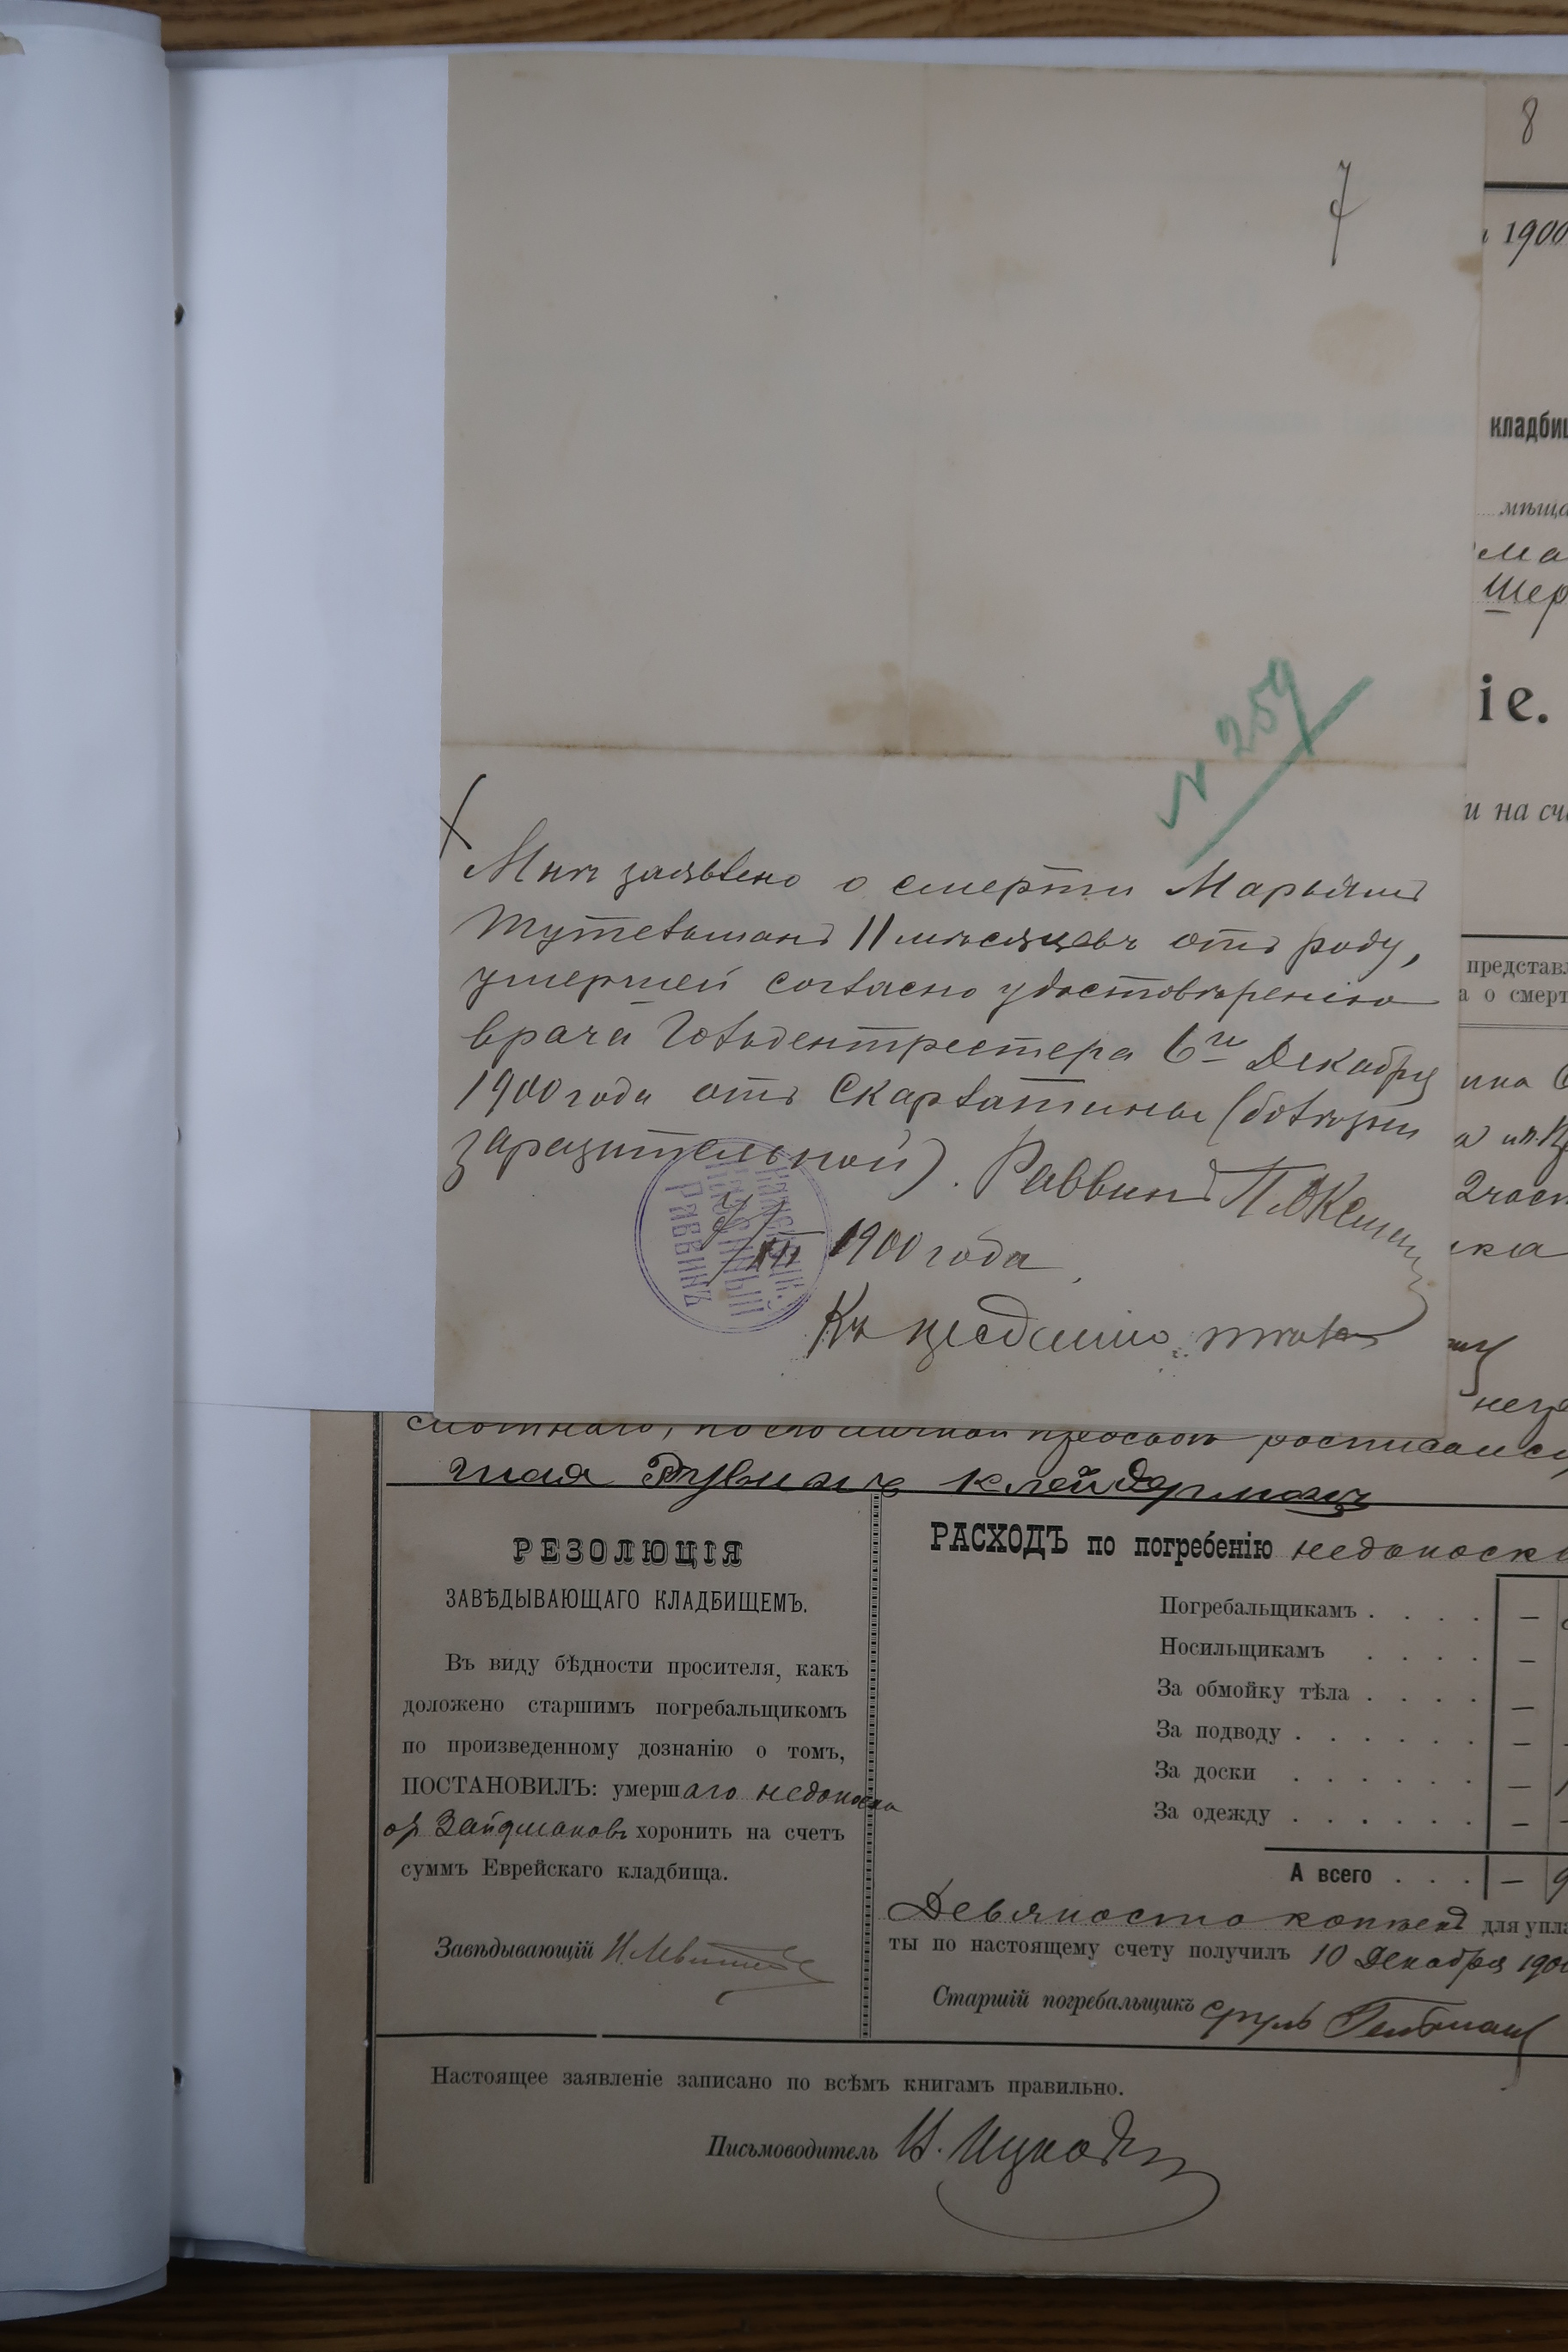 7
8
1900
N 259
Мнѣ заявлено о смерти Марьямъ
Тутельманъ 11 мѣсяцевъ отъ роду,
умершей согласно удостовѣренію
врача Гольдентрестера 6го Декабря
1900 года отъ Скарлатины (болѣзни
заразительной). Раввинъ
7/XII 1900 года
РАВВИНЪ
Къ преданію тѣла
кладбищ
мѣща
Шер
іе.
и на сч
представл
а о смерт
ка
росписался
Клейдерманъ
РЕЗОЛЮЦІЯ
ЗАВѢДЫВАЮЩАГО КЛАДБИЩЕМЪ.
Въ виду бѣдности просителя, какъ
доложено старшимъ погребальщикомъ
по произведенному дознанію о томъ,
ПОСТАНОВИЛЪ: умершаго недоноска
Зайдмановъ хоронить на счетъ
суммъ Еврейскаго кладбища.
Завѣдывающій
РАСХОДЪ по погребенію недоноск
Погребальщикамъ . . . . —
Носильщикамъ . . . . —
За обмойку тѣла . . . . —
За подводу . . . . . . —
За доски . . . . . . —
За одежду . . . . . . —
А всего . . . —
Девяносто копѣекъ для упла
ты по настоящему счету получилъ 10 Декабря 190
Старшій погребальщикъ Сруль Гельбманъ
Настоящее заявленіе записано по всѣмъ книгамъ правильно.
Письмоводитель